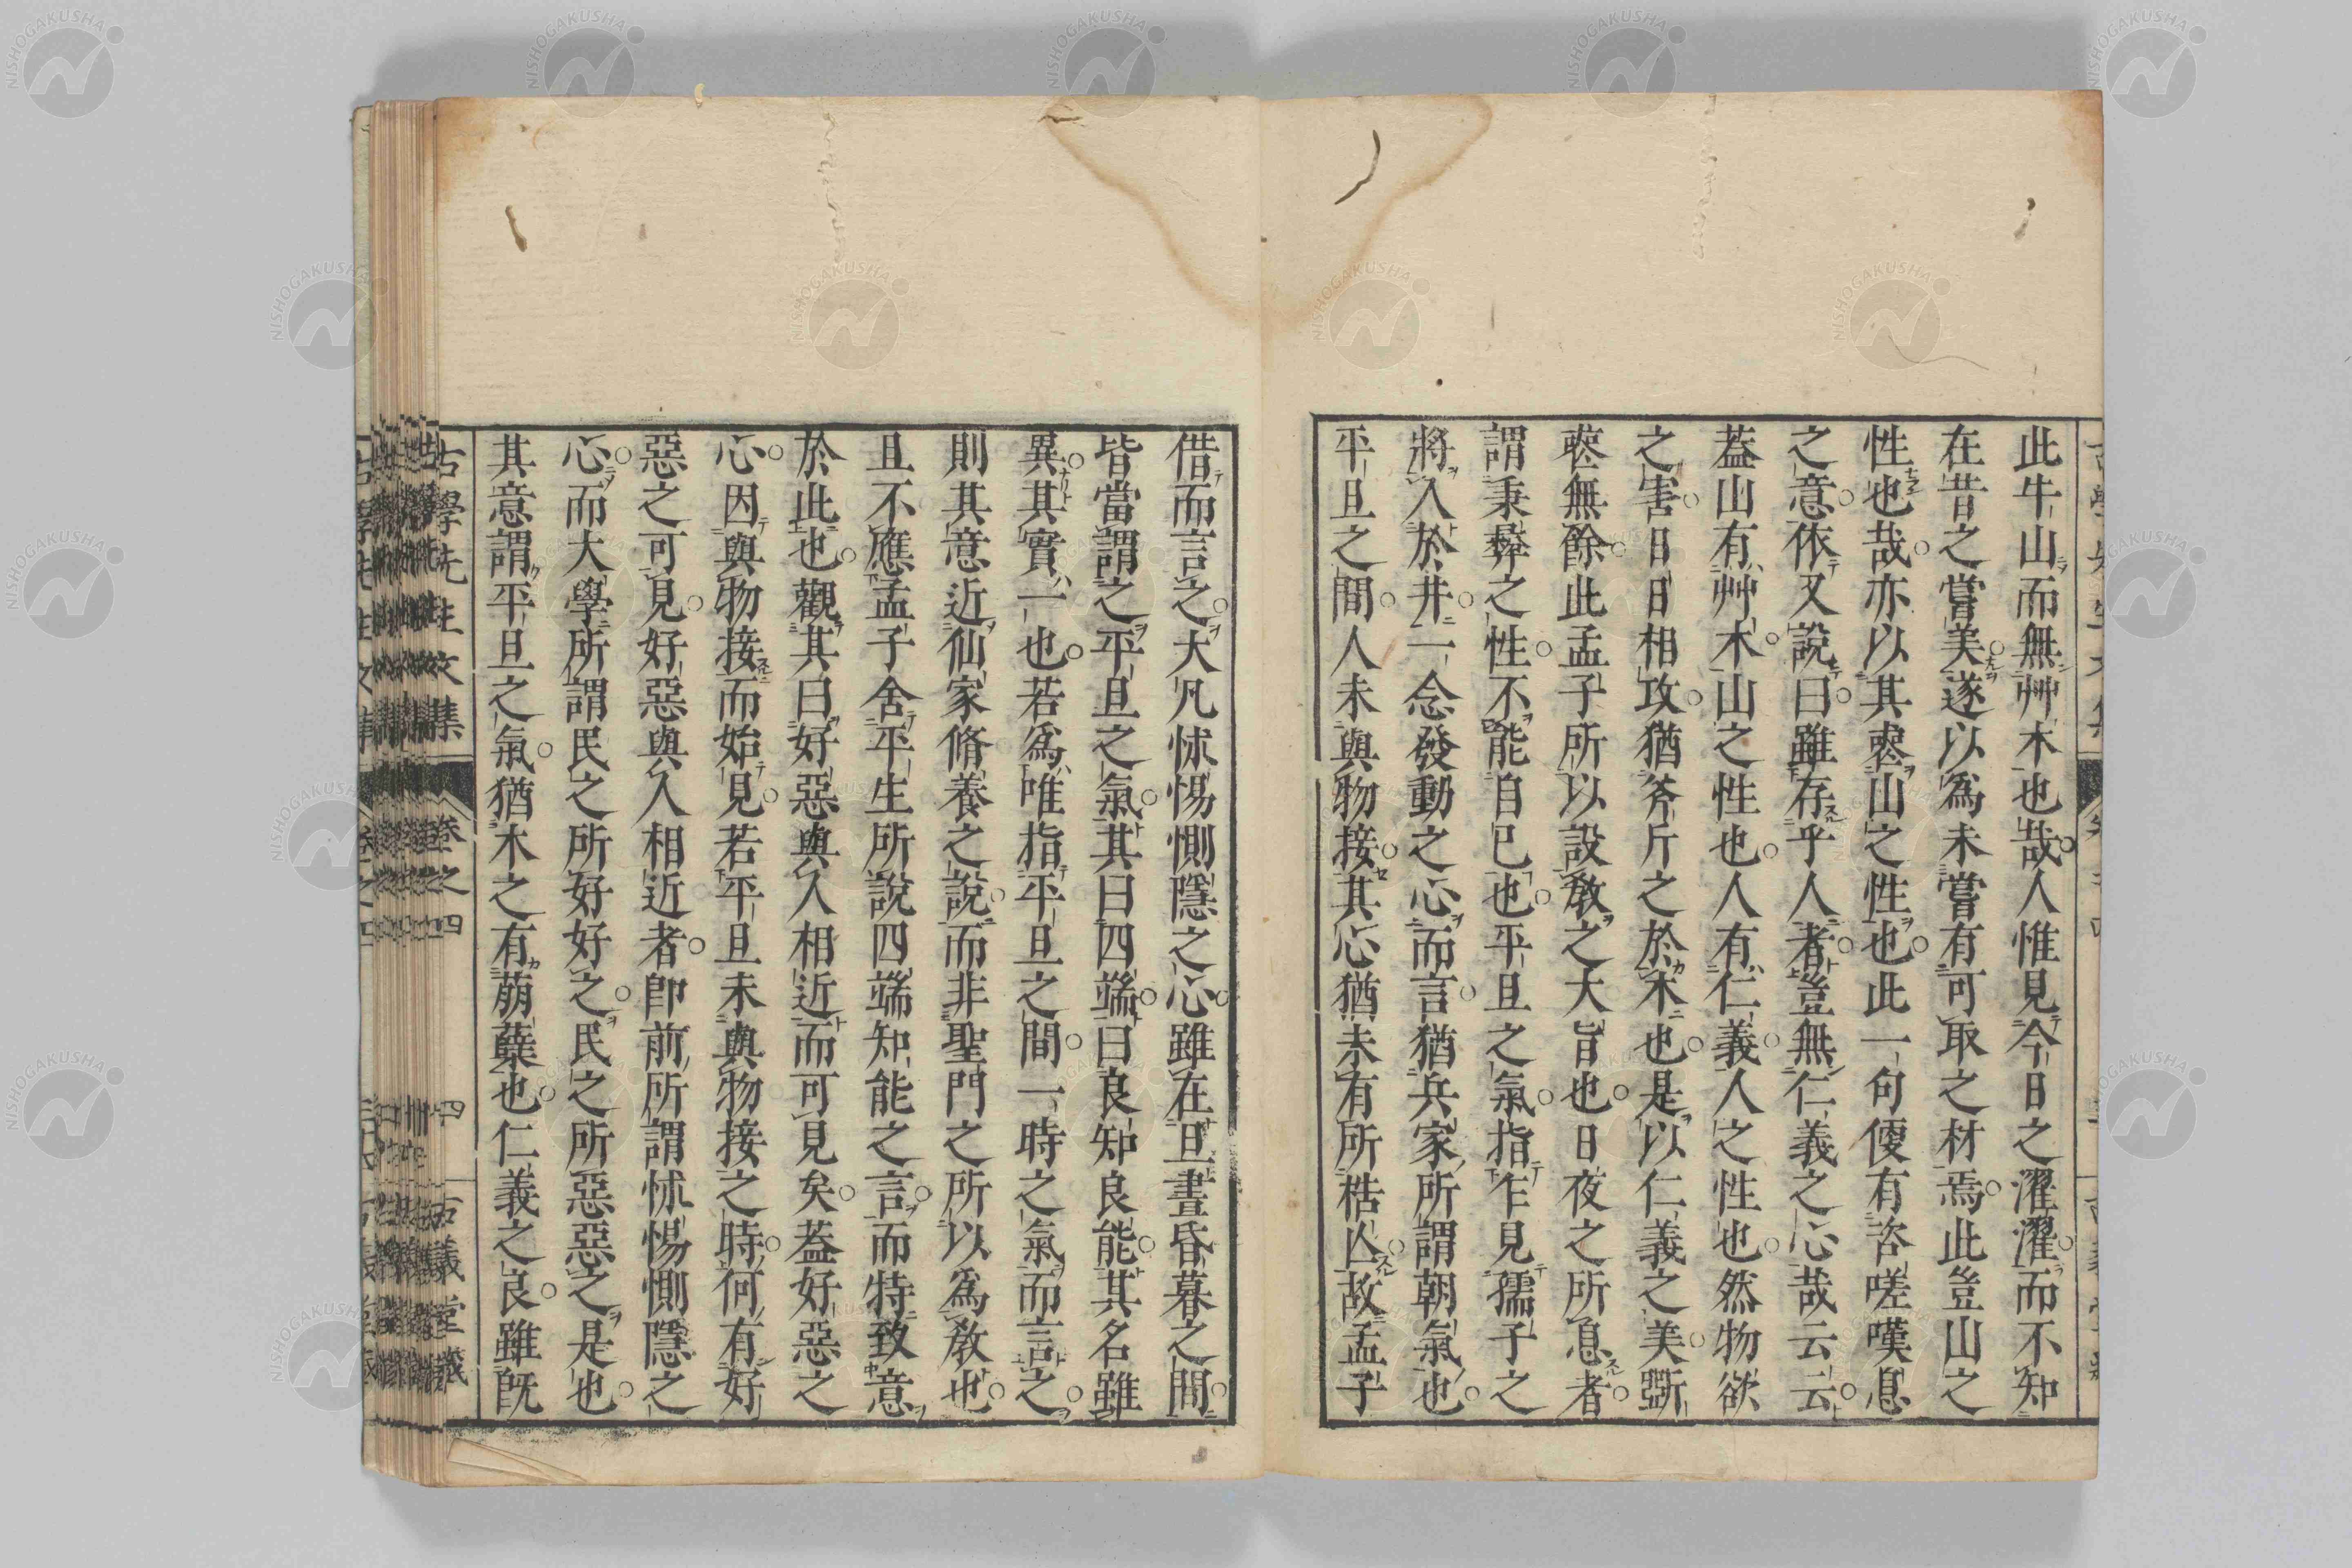 此牛山而無艸木也哉。人惟見今日之濯濯。而不知
在昔之嘗美。遂以爲未嘗有可取之材焉。此豈山之
性也哉。亦以其喪山之性也。此一句便有咨嗟嘆息
之意。依又說曰。雖存乎人者。豈無仁義之心哉云云。
葢山有艸木。山之性也。人有仁義。人之性也。然物欲
之害。日日相攻。猶斧斤之於木也。是以仁義之美。斲
喪無餘。此孟子所以設敎之大旨也。日夜之所息者。
謂秉彝之性。不能自已也。平旦之氣。指乍見孺子之
將入於井。一念發動之心而言。猶兵家所謂朝氣也。
平旦之間。人未與物接。其心猶未有所梏亾。故孟子
借而言之。大凡怵惕惻隱之心。雖在旦晝昏暮之間。
皆當謂之平旦之氣。其曰四端。曰良知良能。其名雖
異。其實一也。若爲唯指平旦之間。一時之氣而言之。
則其意近仙家脩養之說。而非聖門之所以爲敎也。
且不應孟子舍平生所說四端知能之言。而特致意
於此也。觀其曰好惡與人相近而可見矣。葢好惡之
心。因與物接而始見。若平旦未與物接之時。何有好
惡之可見。好惡與人相近者。卽前所謂怵惕惻隱之
心。而大學所謂民之所好好之。民之所惡惡之是也。
其意謂平旦之氣。猶木之有萠蘖也。仁義之良。雖旣
古學先生文集 卷之四 四 古義堂藏